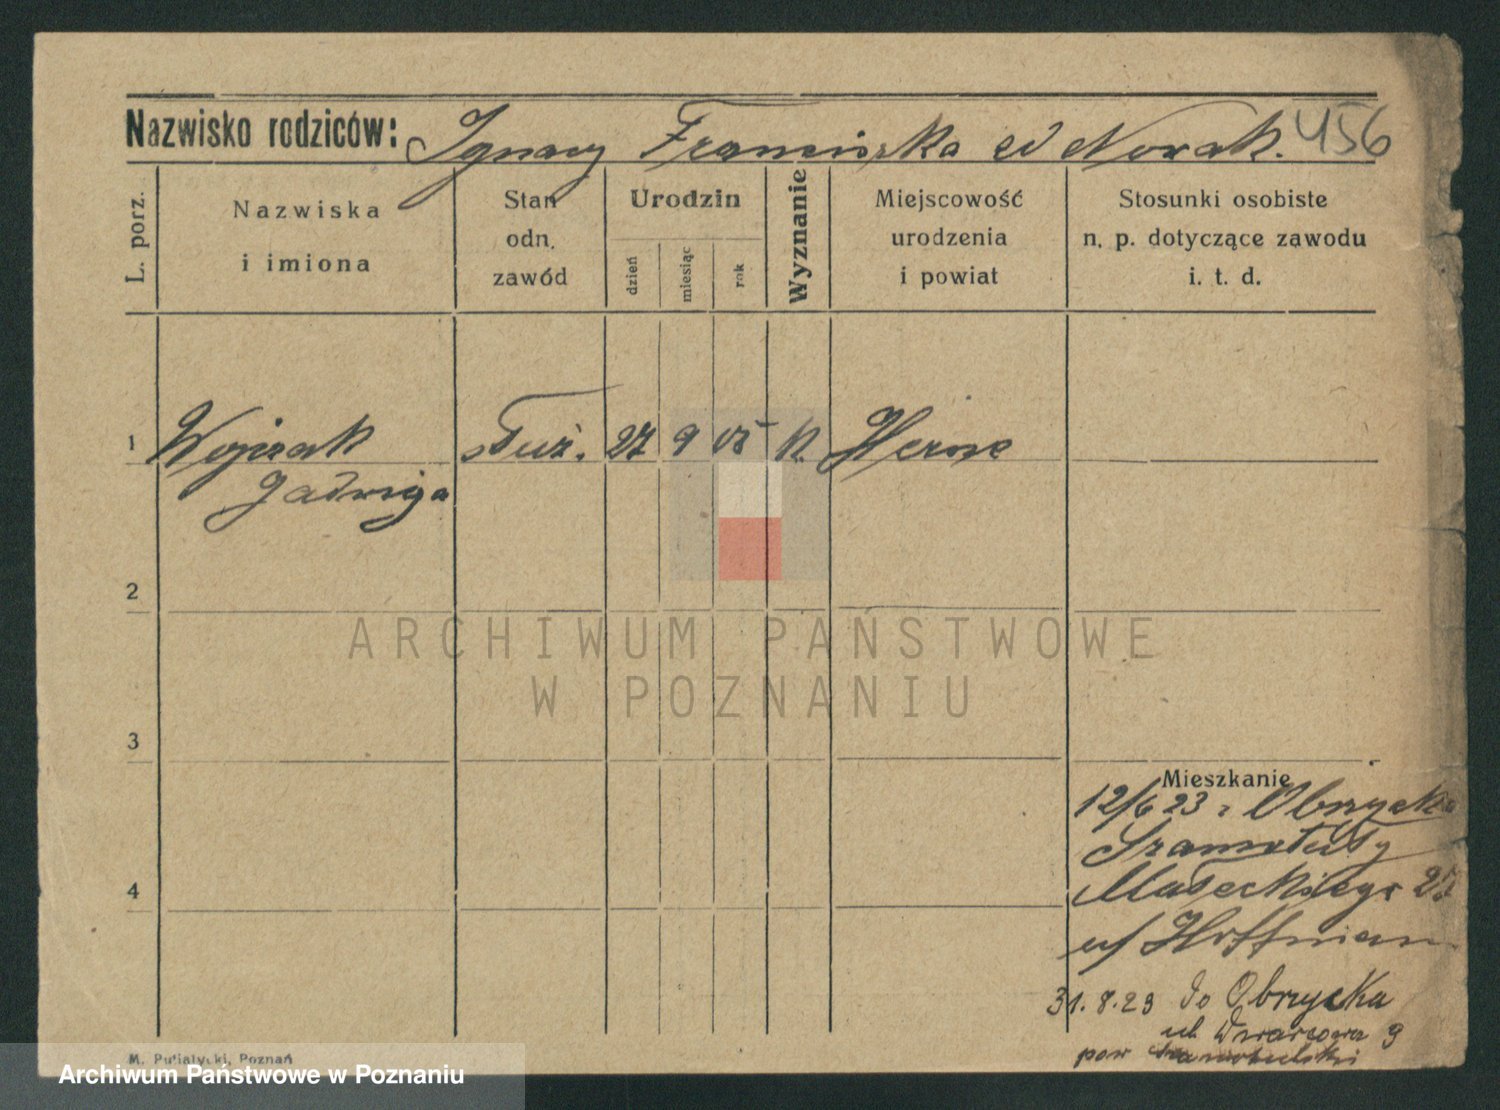 Nazwisko rodziców: Ignacy Franciszka cd Nowak. 456
L. porz.
Nazwiska
i imiona
Stan
odn.
zawód
Urodzin
dzień
miesiąc
rok
Wyznanie
Miejscowość
urodzenia
i powiat
Stosunki osobiste
n. p. dotyczące zawodu
i. t. d.
1 Wojczak służ. 27 9 05 k. Herne
Jadwiga
2
ARCHIWUM PAŃSTWOWE
W POZNANIU
3
Mieszkanie
12/6 23 z Obrzycka
Szamotuły
4
Małeckiego 25
u/ Hoffman
31.8.23 do Obrzycka
ul. Dworcowa 9
pow szamotulski
M. Putiatycki, Poznań
Archiwum Państwowe w Poznaniu